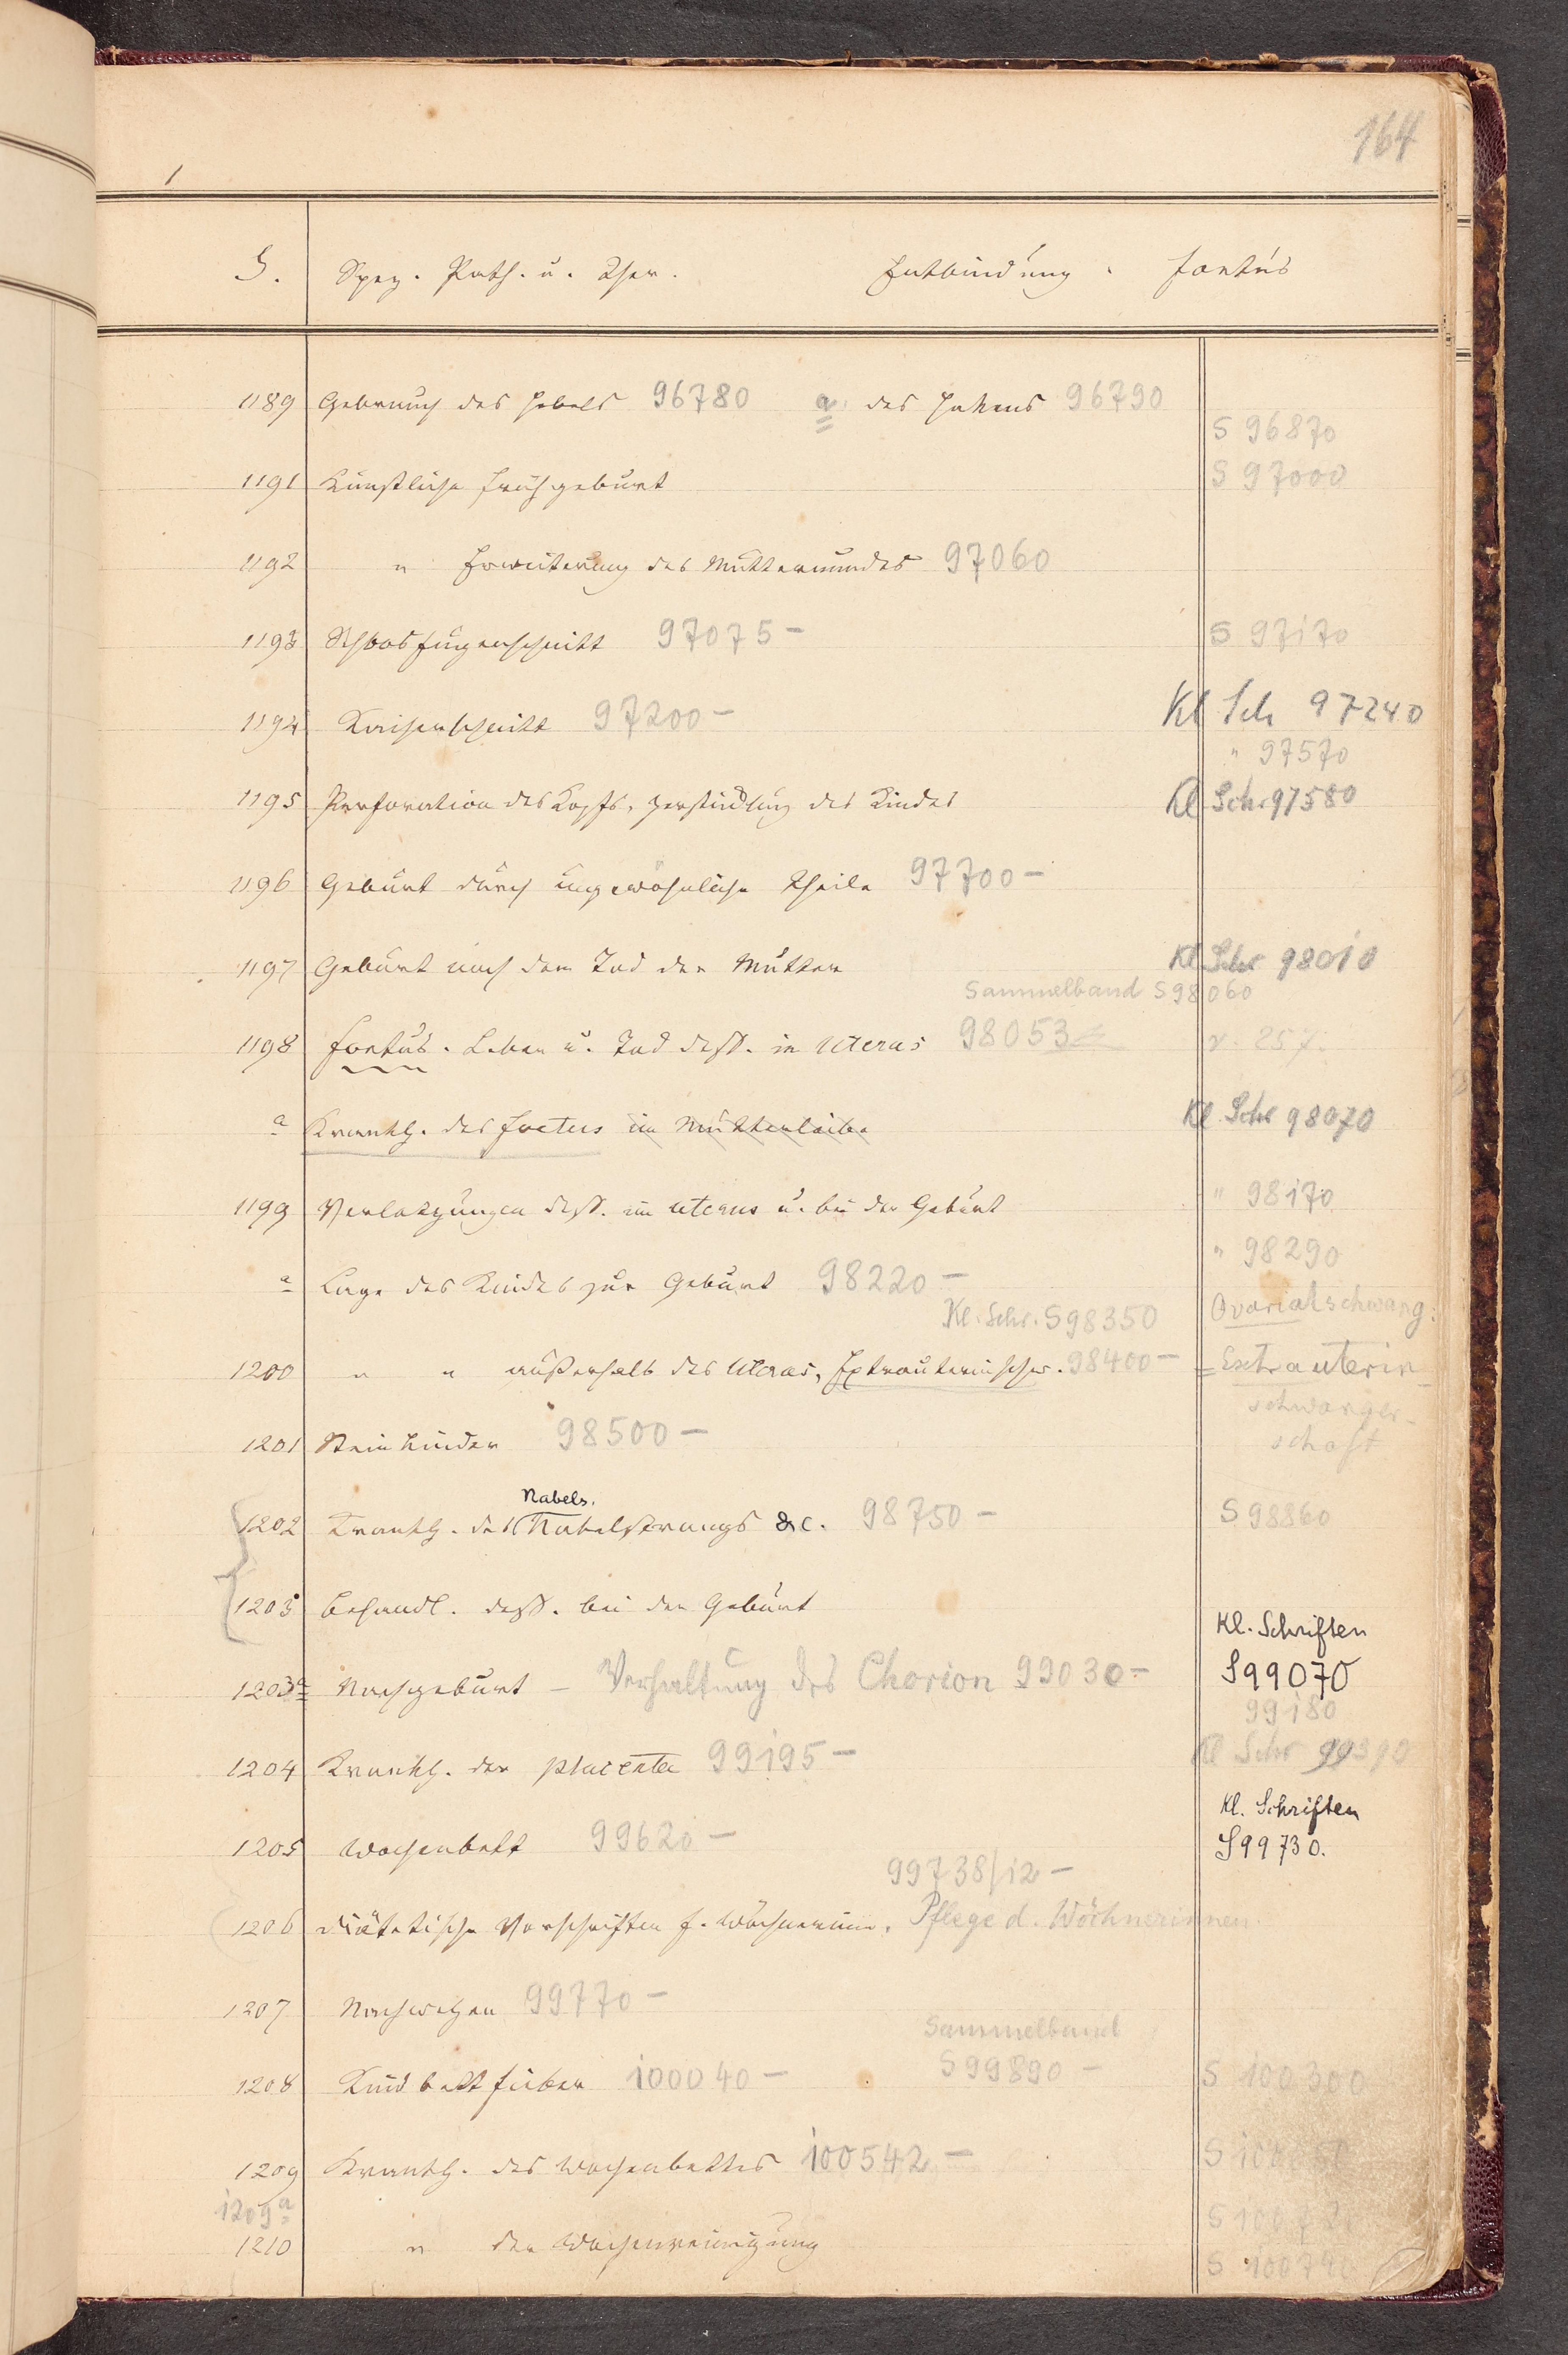 164
1
S. Spez. Path. u. Ther. Entbindung. Foetus
1189 Gebrauch des Hebels 96780 a des Hakens 96790
S 96870
1191 Künstliche Frühgeburt S 97000
1192 " Erweiterung des Muttermundes 97060
1193 Schoosfugenschnitt 97075– S 97170
1194 Kaiserschnitt 97200– Kl Sch 97240
" 97570
1195 Perforation des Kopfs, Zerstücklung des Kindes Kl Schr 97580
1196 Geburt durch ungewöhnliche Theile 97700–
1197 Geburt nach dem Tod der Mutter Kl Schr 98010
Sammelband S 98060
1198 Foetus. Leben u. Tod dess. in Uterus 98053 v. 257.
a Krankh. des Foetus im Mutterleibe Kl. Schr 98070
1199 Verletzungen dess. im uterus u. bei der Geburt " 98170
" 98290
a Lage des Kindes zur Geburt 98220–
Kl. Schr. S 98350 Ovarialschwang:
1200 " " außerhalb des Uterus, Extrauterinschw. 98400– = Extrauterin
schwanger-
schaft
1201 Steinkinder 98500–
Nabels.
1202 Krankh. des Nabelstrangs &c. 98750– S 98860
1203 Behandl. dess. bei der Geburt
Kl. Schriften
1203a Nachgeburt – Verhaltung des Chorion 99030– S 99070
99180
1204 Krankh. der placenta 99195– Kl Schr 99390
Kl. Schriften
1205 Wochenbett 99620– S 99730.
99738/12–
1206 diätetische Vorschriften f. Wöchnerinn. Pflege d. Wöchnerinnen
1207 Nachwehen 99770–
Sammelband
1208 Kindbettfieber 100040– S 99890– S 100300
1209 Krankh. des Wochenbettes 100542– S
1209a S
1210 " der Wochenreinigung S